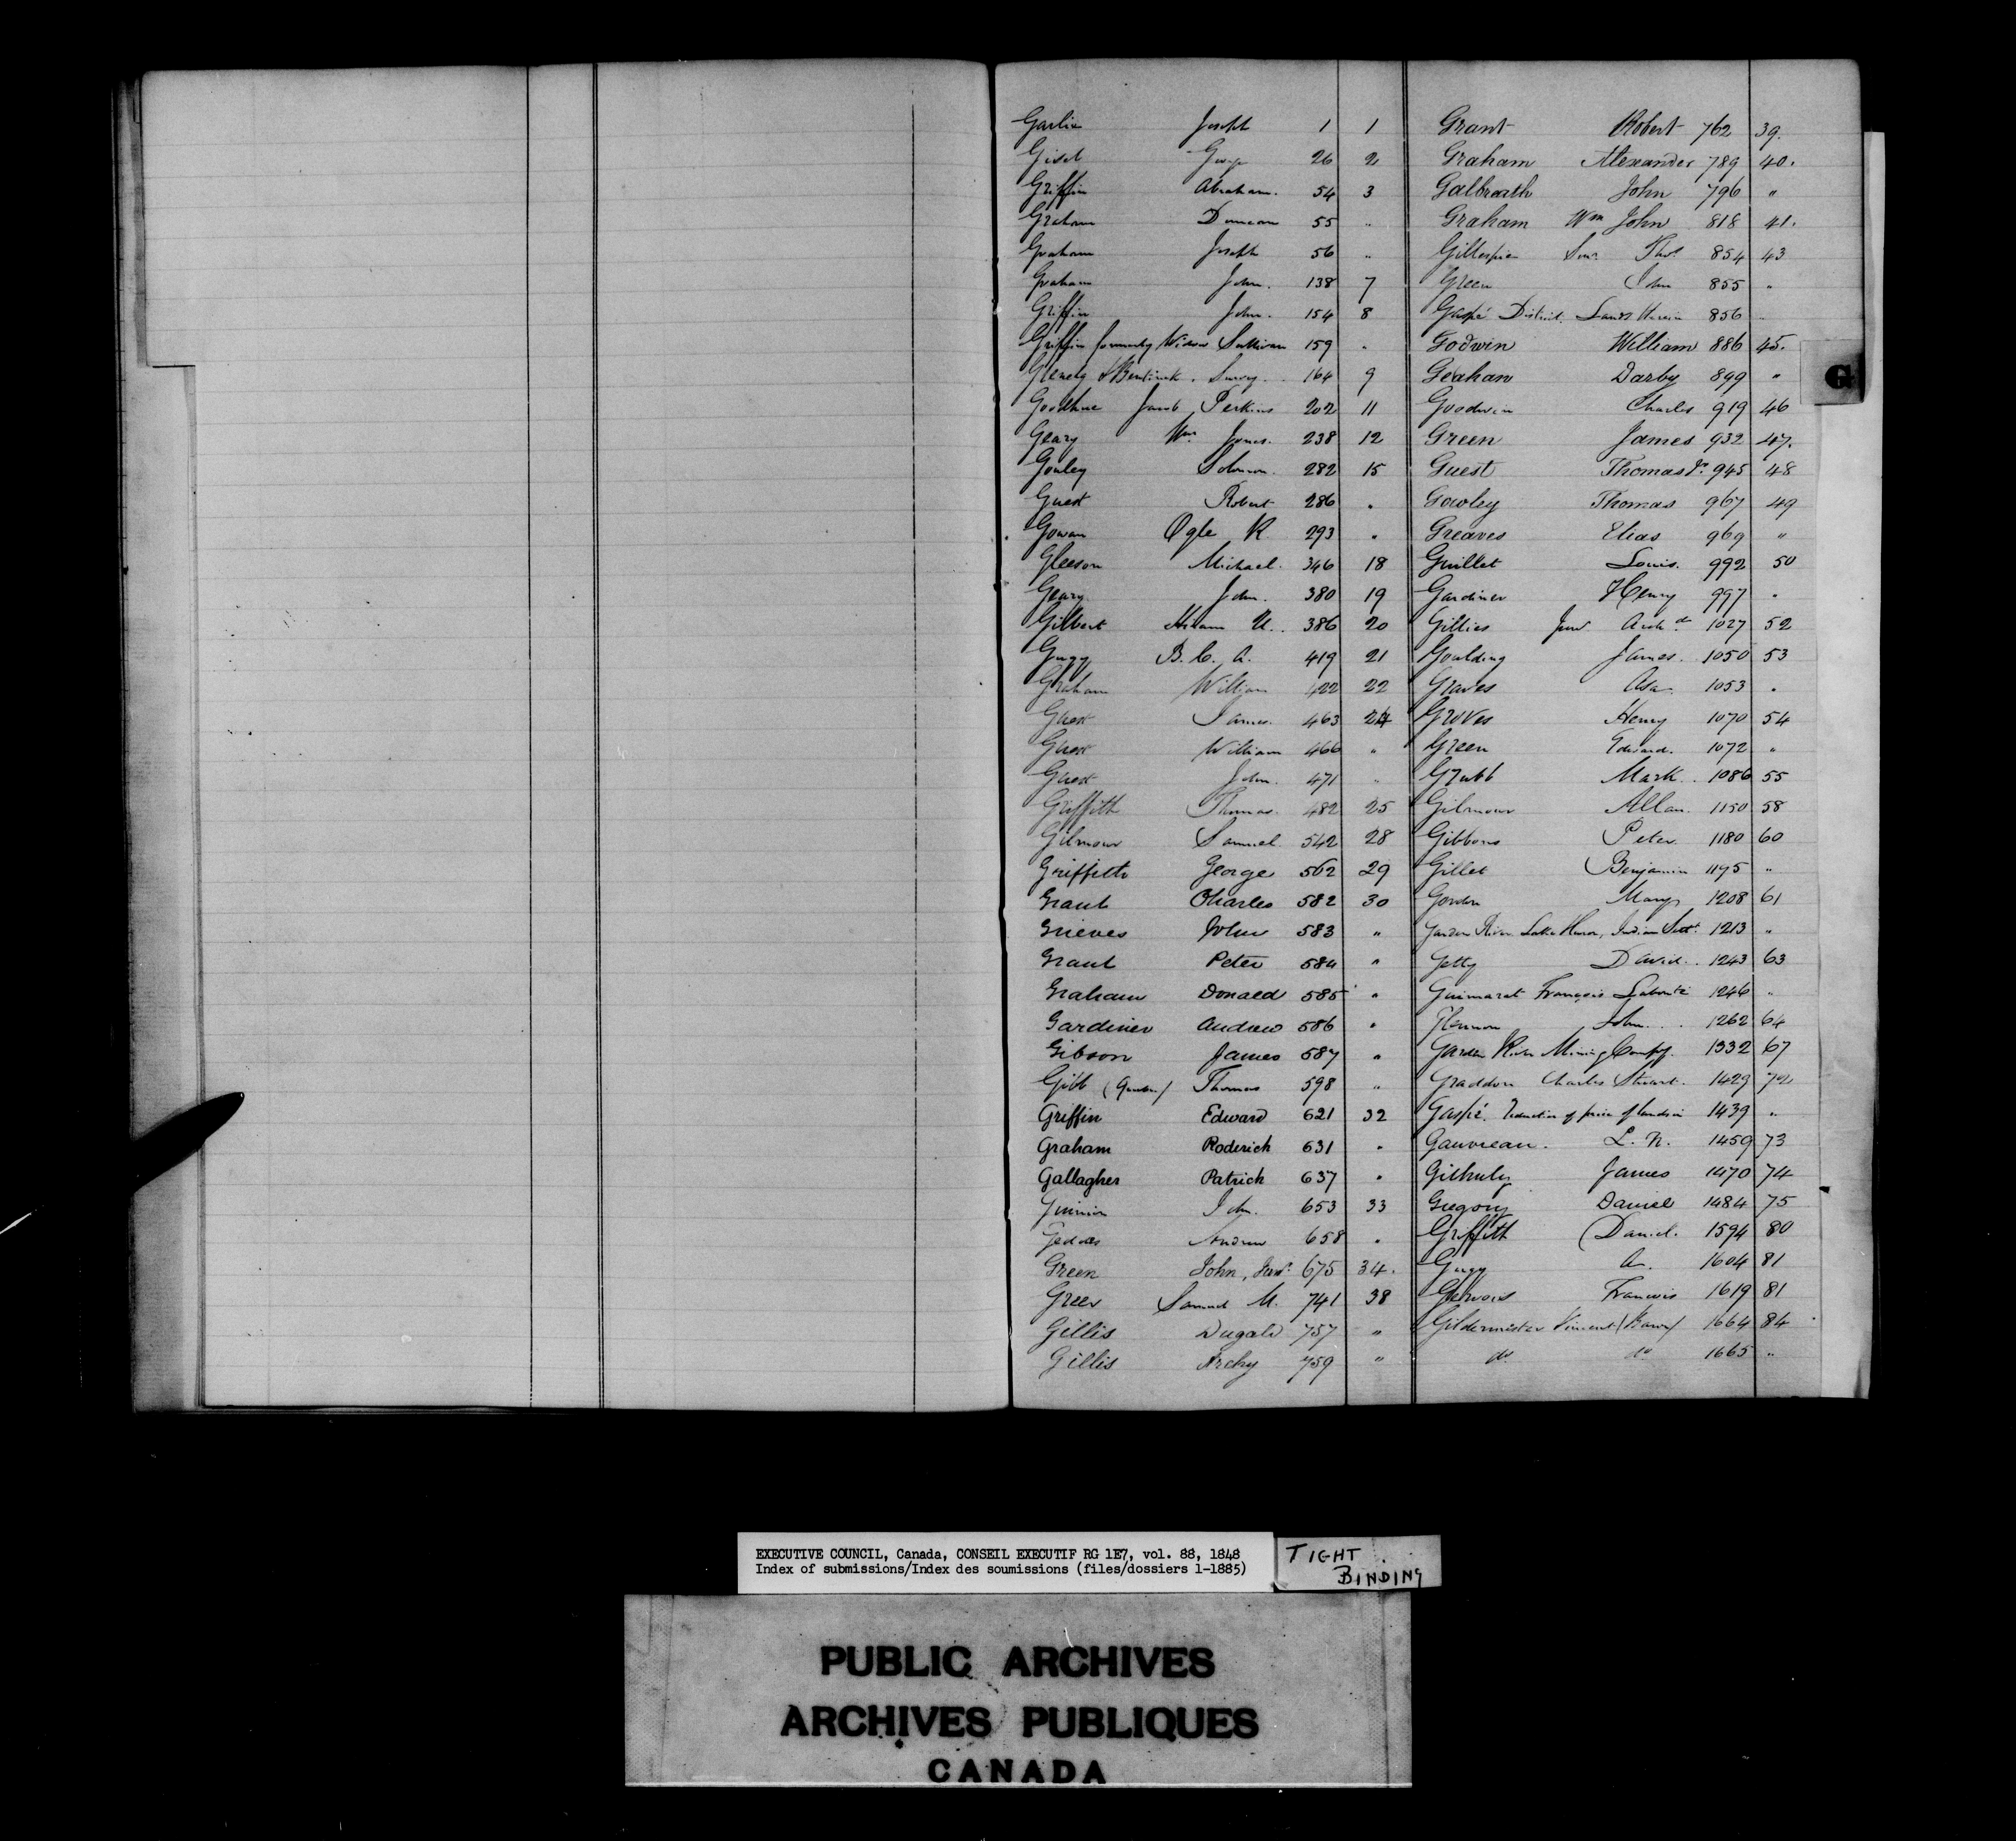 Garlin Joseph 1 1
Gisel George 26 2
Griffin Abraham. 54 3
Graham Duncan 55 "
Graham Joseph 56 "
Graham John. 138 7
Griffin John. 154 8
Griffin formerly Widow Sullivan 159 "
Glenelg & Bentinck. Survey. 164 9
Goodhue Jacob Perkins 202 11
Geary Wm Jones. 238 12
Gouley Solomon. 282 15
Guest Robert 286 "
Gowan Ogle R 293 "
Gleeson Michael. 346 18
Geary. John. 380 19
Gilbert Hiram U. 386 20
Gugy B. C. A. 419 21
Graham William 422 22
Guest James. 463 24
Guest William 466 "
Guest John. 471 "
Griffith Thomas. 482 25
Gilmour Samuel 542 28
Griffith George 562 29
Grant Charles 582 30
Grieves John 583 "
Grant Peter 584 "
Graham Donald 585 "
Gardiner Andrew 586 "
Gibson James 587 "
Gibb (Quebec) Thomas 598 "
Griffin Edward 621 32
Graham Roderick 631 "
Gallagher Patrick 637 "
John. 653 33
Geddes Andrew 658 "
Green John, Junr. 675 34.
Greer Samuel M. 741 38
Gillis Dugald 757 "
Gillis Archy 759 "
Grant Robert 762 39.
Graham Alexander 789 40.
Galbreath John 796 "
Graham Wm John 818 41.
Gillespie Senr. Thos. 854 43
Green John 855 "
Gaspé District. Lands therein 856 "
Godwin William 886 45.
Geahan Darby 899 "
Goodwin Charles 919 46
Green James 932 47.
Guest Thomas Jr. 945 48
Gowley Thomas 967 49
Greaves Elias 969 "
Guillet Louis. 992 50
Gardiner Henry 997 "
Gillies Junr Archd. 1027 52
Goulding James. 1050 53
Graves Asa. 1053 "
Groves Henry 1070 54
Green Edward. 1072 "
Grubb Mark. 1086 55
Gilmour Allan. 1150 58
Gibbons Peter 1180 60
Gillet Benjamin 1195 "
Gordon Mary 1208 61
Garden River Lake Huron, Indian Sett. 1213 "
Getty David. 1243 63
François 1246 "
Glennon John. 1262 64
Garden River Mining Compy. 1332 67
Graddon Charles Stuart. 1429 72
Gaspé. Reduction of price of lands in 1439 "
Gauvreau. L. N. 1459 73
Gilhuly James 1470 74
Gregory Daniel 1484 75
Griffith Daniel. 1594 80
Gugy A. 1604 81
Gervais Francois 1619 81
Gildermister Vincent (Baron) 1664 84
do do 1665 "
G
EXECUTIVE COUNCIL, Canada, CONSEIL EXECUTIF RG 1E7, vol. 88, 1848
Index of submissions/Index des soumissions (files/dossiers 1-1885)
TIGHT
BINDING
PUBLIC ARCHIVES
ARCHIVES PUBLIQUES
CANADA